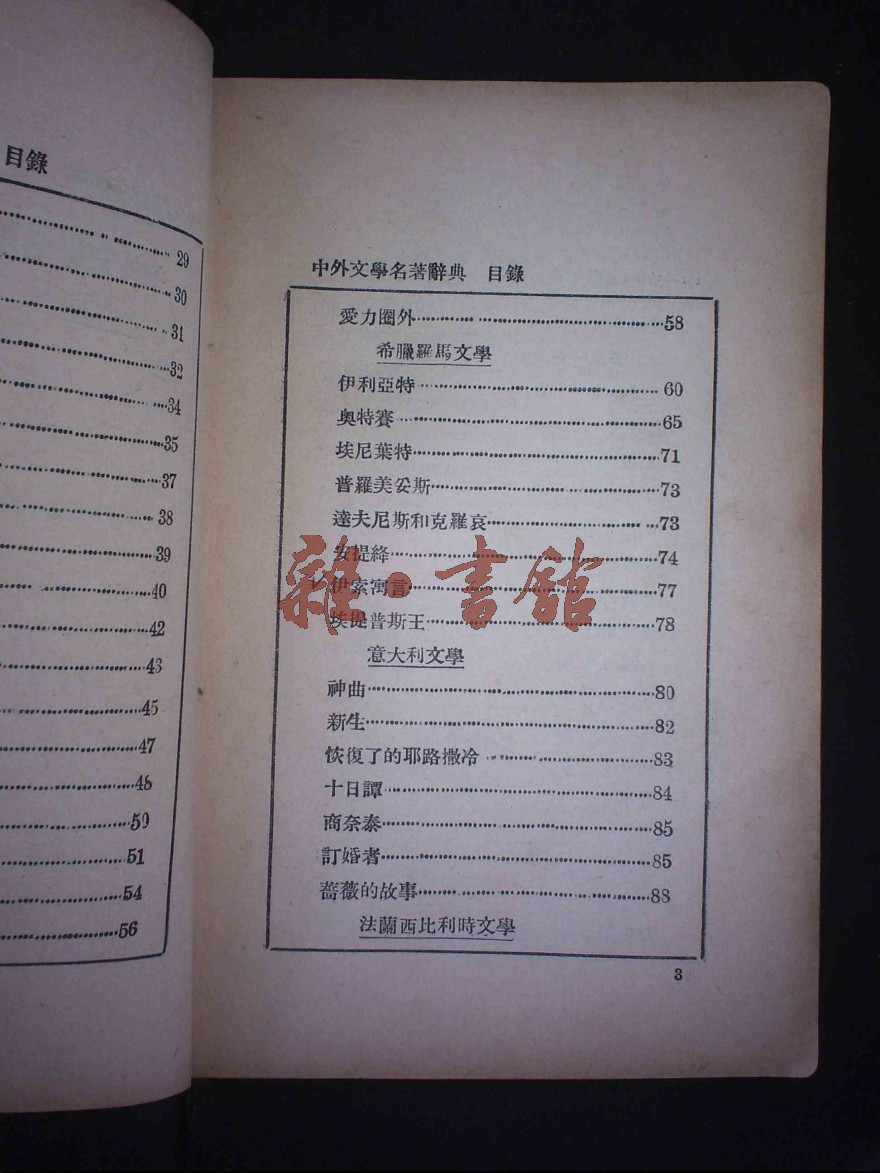 目錄
29
30
31
32
34
35
37
38
39
40
42
43
45
47
48
59
51
54
56
中外文學名著辭典 目錄
愛力圈外……58
希臘羅馬文學
伊利亞特……60
奧特賽……65
埃尼葉特……71
普羅美妥斯……73
達夫尼斯和克羅哀……73
安提絳……74
伊索寓言……77
埃提普斯王……78
意大利文學
神曲……80
新生……82
恢復了的耶路撒冷……83
十日譚……84
商奈泰……85
訂婚者……85
薔薇的故事……88
法蘭西比利時文學
3
雜·書館